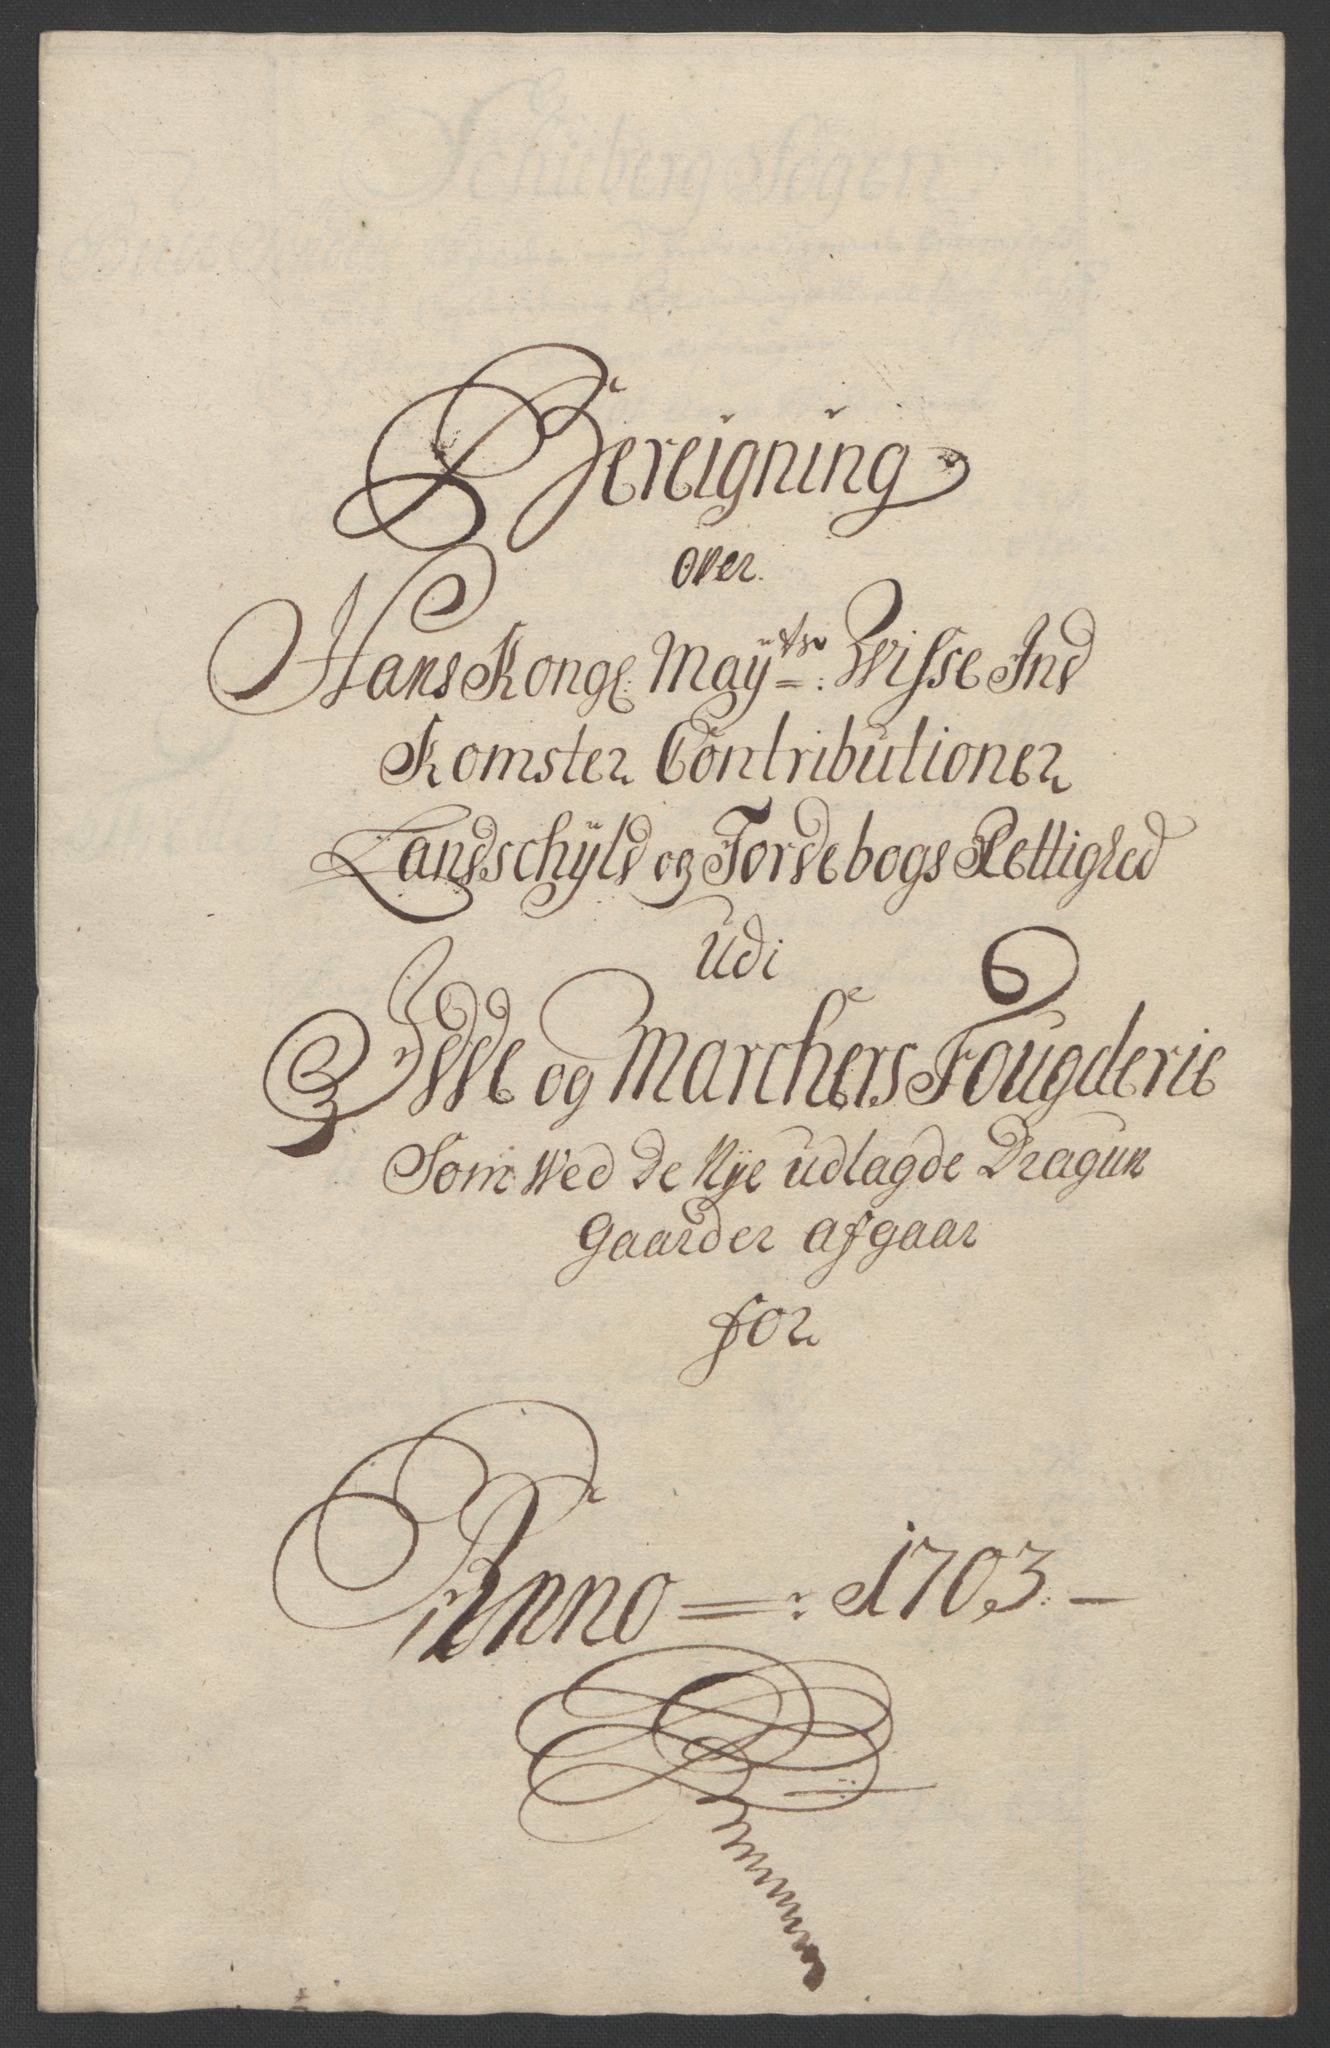 Bereigning
over
Hans Kongl: Maÿtz: Wisse Ind
Komster Contributioner
Landschÿld og Jordebogs Rettighed
udi
Idde og Marchers Fougderie
Som Wed de Nÿe udlagde Dragun
Gaarder afgaar
for
Anno =: 1703 -